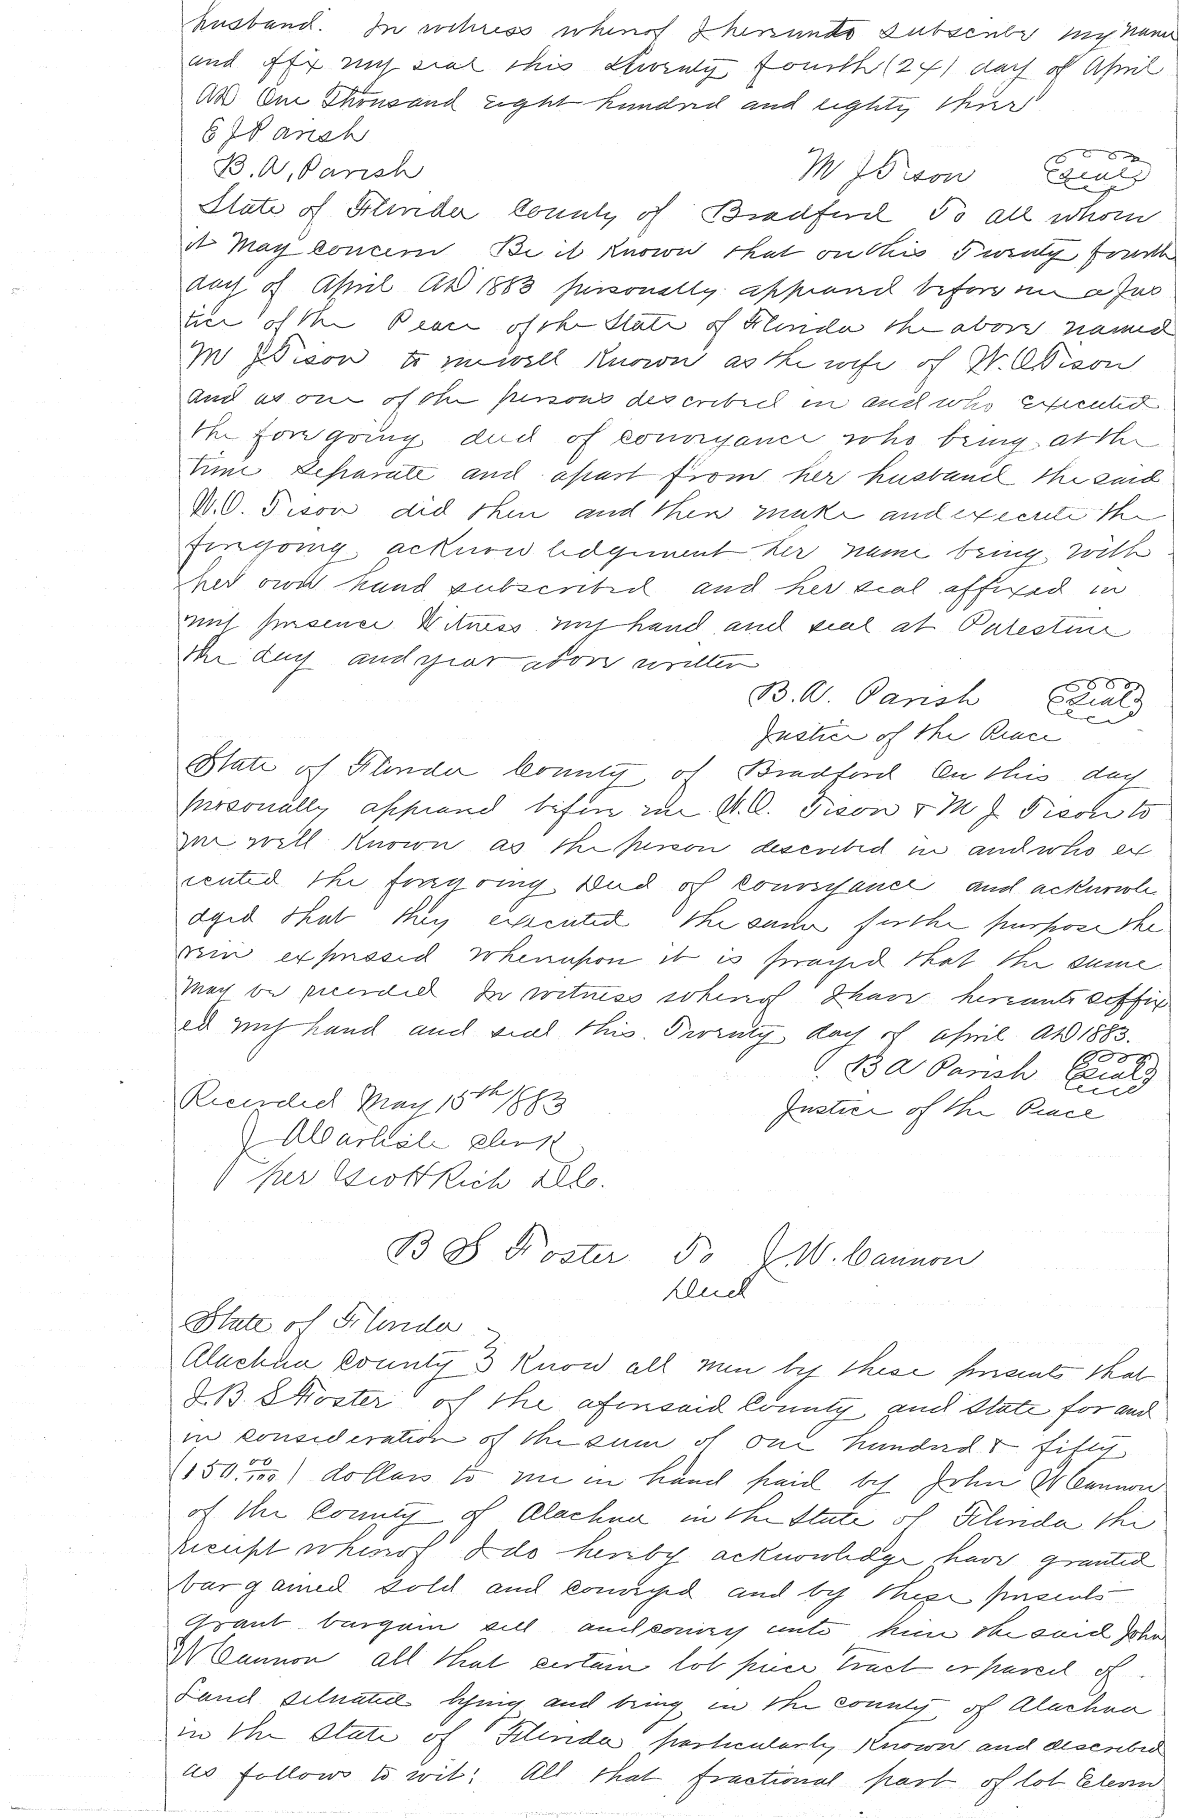 husband. In witness whereof I hereunto subscribe my name
and affix my seal this twenty fourth (24) day of April
AD One Thousand eight hundred and eighty three
E J Parish
B. A, Parish M J Tison Seal
State of Florida County of Bradford To all whom
it May concern Be it Known that on this Twenty fourth
day of April AD 1883 personally appeared before me a Jus
tice of the Peace of the State of Florida the above named
M J Tison to me well Known as the wife of W. O Tison
and as one of the persons described in and who executed
the foregoing deed of conveyance who being at the
time separate and apart from her husband the said
W. O. Tison did then and then make and execute the
foregoing acknowledgement her name being with
her own hand subscribed and her seal affixed in
my presence Witness my hand and seal at Palestine
the day and year above written
B. A. Parish Seal
Justice of the Peace
State of Florida County of Bradford On this day
personally appeared before me W. O. Tison & M J Tison to
me well Known as the person described in and who ex
ecuted the foregoing Deed of conveyance and acknowle
dged that they executed the same for the purpose the
rein expressed whereupon it is prayed that the same
May be recorded In witness whereof I have hereunto affix
ed my hand and seal this Twenty day of april AD 1883.
B A Parish Seal
Recorded May 15th 1883 Justice of the Peace
J A Carlisle Clerk
per Scott Rich D.C.
B S Foster To J. W. Cannon
Deed
State of Florida
Alachua County } Know all men by these presents that
I. B. S Foster of the aforesaid County and State for and
in consideration of the sum of one hundred & fifty
(150.00/100) dollars to me in hand paid by John W Cannon
of the County of Alachua in the State of Florida the
receipt whereof I do hereby acknowledge have granted
bargained sold and conveyed and by these presents
grant bargain sell and convey unto him the said John
W Cannon all that certain lot piece tract or parcel of
Land situated lying and being in the county of Alachua
in the State of Florida particularly Known and described
as follows to wit: All that fractional part of lot Eleven